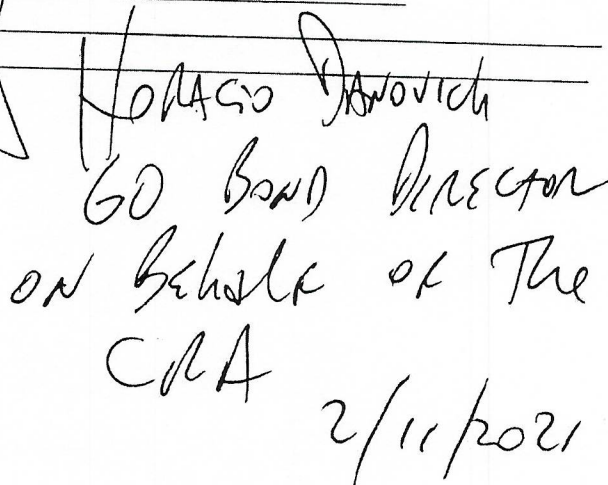 Horacio Danovich
GO Bond Director
on Behalf of The
CRA
2/11/2021